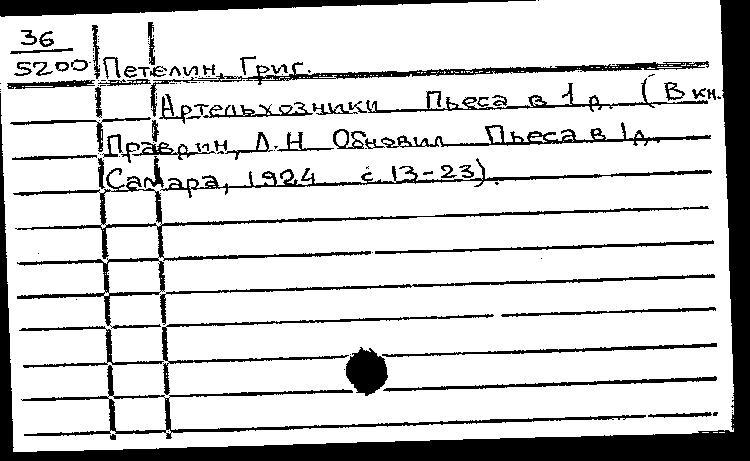 36
5200 Петелин, Григ.
Артельхозники Пьеса в 1 д. (В кн.
Правдин, Л.Н Обновил Пьеса в 1д.
Самара, 1924 с. 13-23).